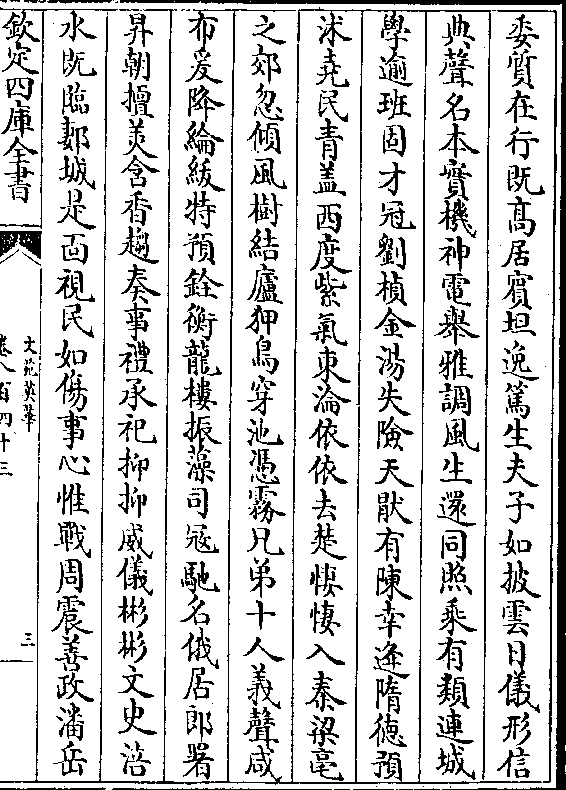 委質在行既髙居賓坦逸篤生夫子如披雲日儀形信
典聲名本實機神電舉雅調風生還同照乘有類連城
學逾班固才冠劉楨金湯失險天猒有陳幸逢隋徳預
沭堯民青盖西度紫氣東淪依依去楚悽悽入秦梁亳
之郊忽傾風樹結廬狎鳥穿池憑霧兄弟十人義聲咸
布爰降綸紱特預銓衡龍樓振藻司冦馳名俄居郎署
昇朝擅美含香趨奏事禮承祀抑抑威儀彬彬文史涪
水既臨鄀城是面視民如傷事心惟戰周震善政潘岳
欽定四庫全書
文苑英華
卷八百四十三
三